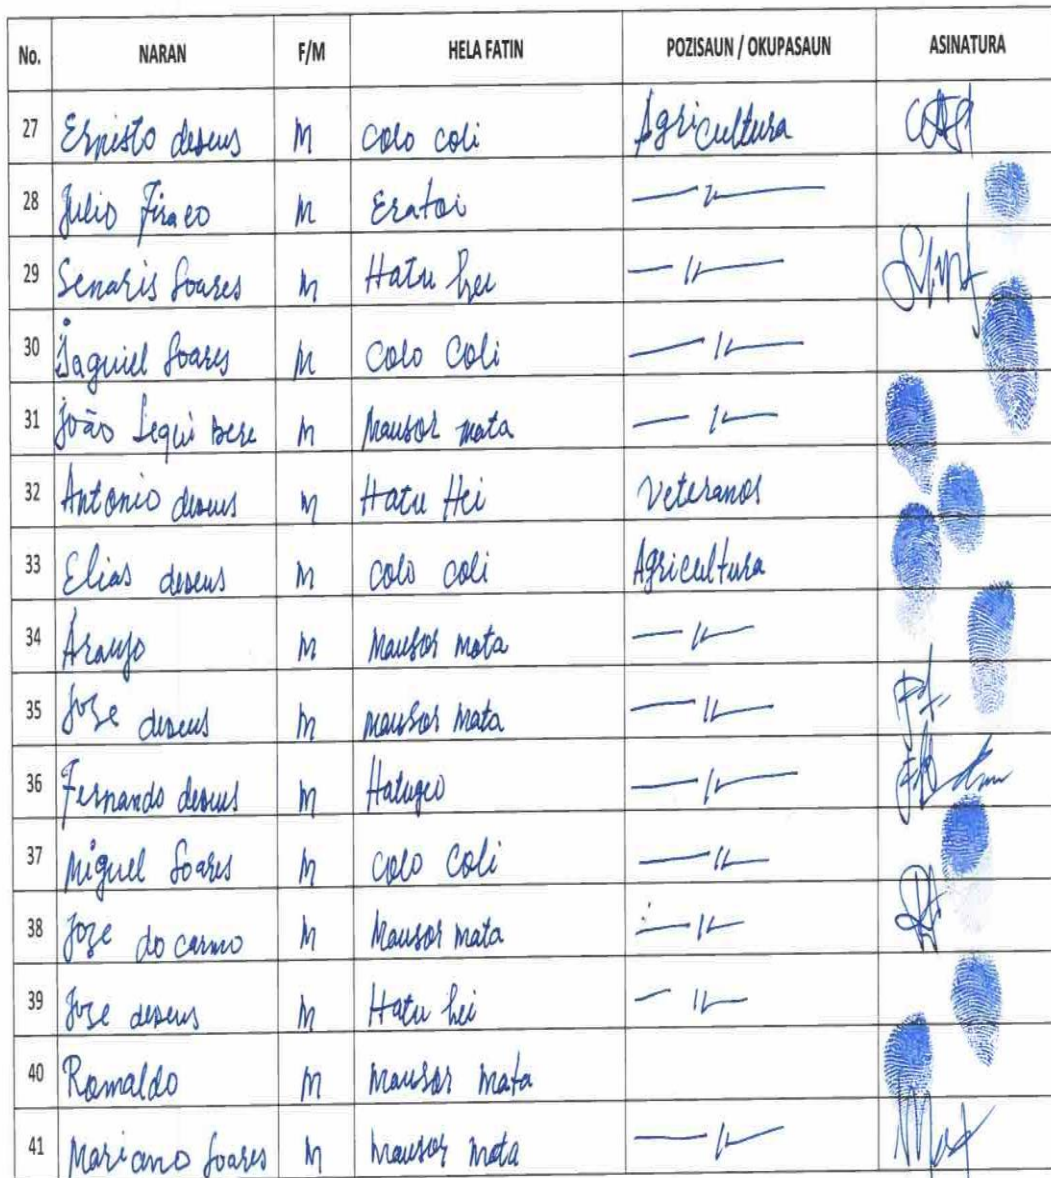 No. NARAN F/M HELA FATIN POZISAUN / OKUPASAUN ASINATURA
27 Ernisto deseus M Colo coli Agricultura
28 Julio Firaco M Eratoi — 〃 —
29 Senaris Soares M Hatu hei — 〃 —
30 Jaguiel Soares M Colo Coli — 〃 —
31 João Lequi Bere M Mausor mata — 〃 —
32 Antonio deseus M Hatu Hei Veteranos
33 Elias deseus M Colo coli Agricultura
34 Araujo M Mausor mata — 〃 —
35 Joze deseus M Mausor mata — 〃 —
36 Fernando deseus M Hatugeo — 〃 —
37 Miguel Soares M Colo Coli — 〃 —
38 Joze do carmo M Mausor mata — 〃 —
39 Joze deseus M Hatu hei — 〃 —
40 Romaldo M Mausor mata
41 Mariano Soares M Mausor mata — 〃 —